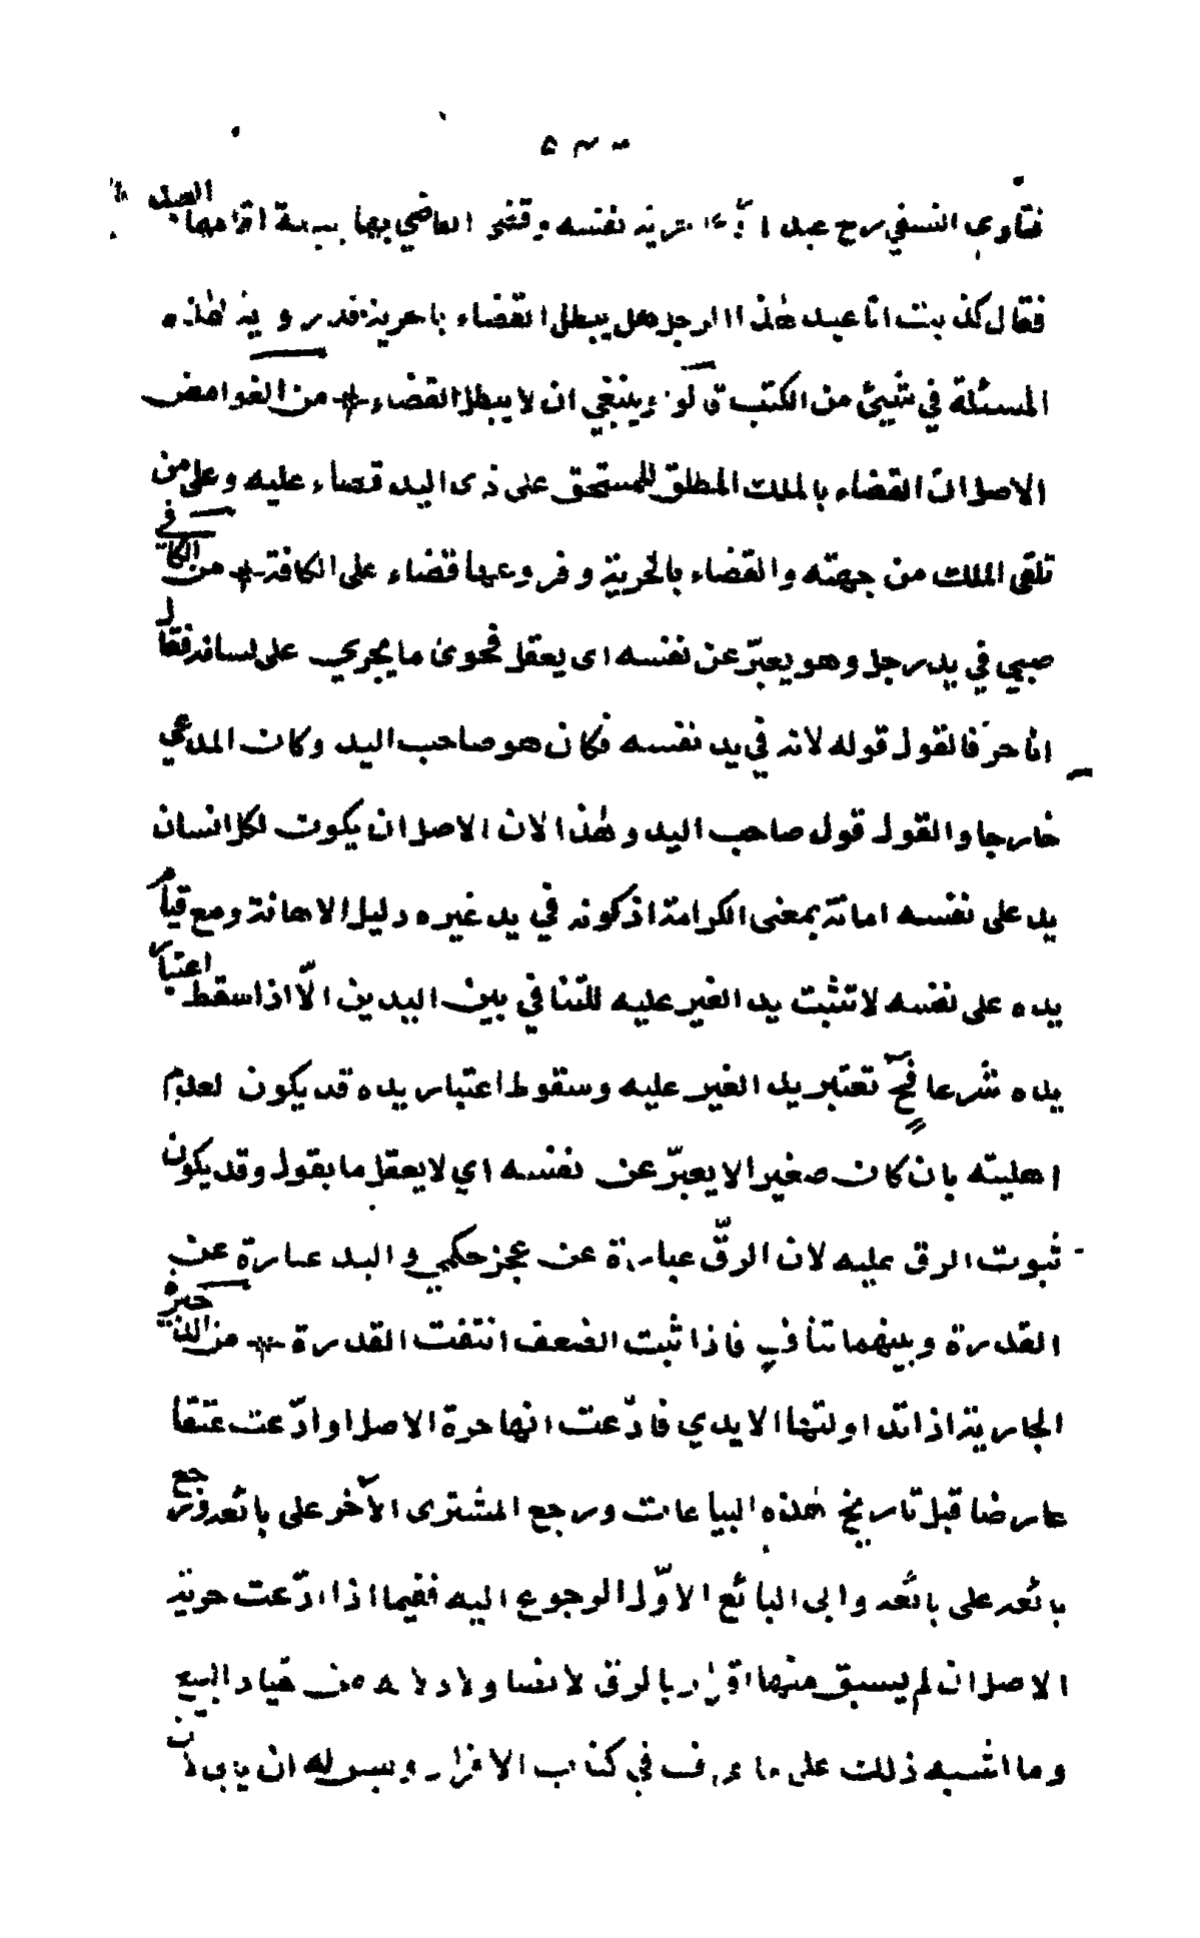 فتاوى النسفي رح عبد نفسه وقضى القاضي بها ببينة اقامها العبد
فقال كذبت انا عبد هٰذا الرجل هل يبطل القضاء با حرية قدر لهٰذه
المسئلة في شيئ من الكتب وينبغي ان لا يبطل القضاء من الغوامض
الاصل ان القضاء بالملك المطلق للمستحق على ذى اليد قضاء عليه وعلى من
تلقى الملك من جهته والقضاء بالحرية وفروعها قضاء على الكافة من الكافي
صبي في يد رجل وهو يعبّر عن نفسه اى يعقل فحوى ما يجري على لسانه فقال
انا حرّ فالقول قوله لانه في يد نفسه فكان هو صاحب اليد وكان المدعي
خارجا والقول قول صاحب اليد وهٰذا لان الاصل ان يكون لكل انسان
يد على نفسه امانة بمعنى الكرامة اذ كونه في يد غيره دليل الاهانة ومع قيام
يده على نفسه لا تثبت يد الغير عليه للتنافي بين اليدين الّا اذا سقط اعتبار
يده شرعا فحٓ تعتبر يد الغير عليه وسقوط اعتبار يده قد يكون لعدم
اهليته بان كان صغيرا لا يعبّر عن نفسه اي لا يعقل ما يقول وقد يكون
ثبوت الرق عليه لان الرقّ عبارة عن عجز حكمي واليد عبارة عن
القدرة وبينهما تناف فاذا ثبت الضعف انتفت القدرة من الذخيرة
الجارية اذا تداولتها الايدي فادّعت انها حرة الاصل او ادّعت عتقا
عارضا قبل تاريخ هٰذه البياعات ورجع المشترى الآخر على بائعه ورجع
بائعه على بائعه والى البائع الاوّل الرجوع اليه ففيما اذا ادّعت حرية
الاصل ان لم يسبق منها اقرار بالرق لا نصا ولا دلالة من انقياد البيع
وما اشبه ذلك على ما عرف في كتاب الاقرار وليس له ان